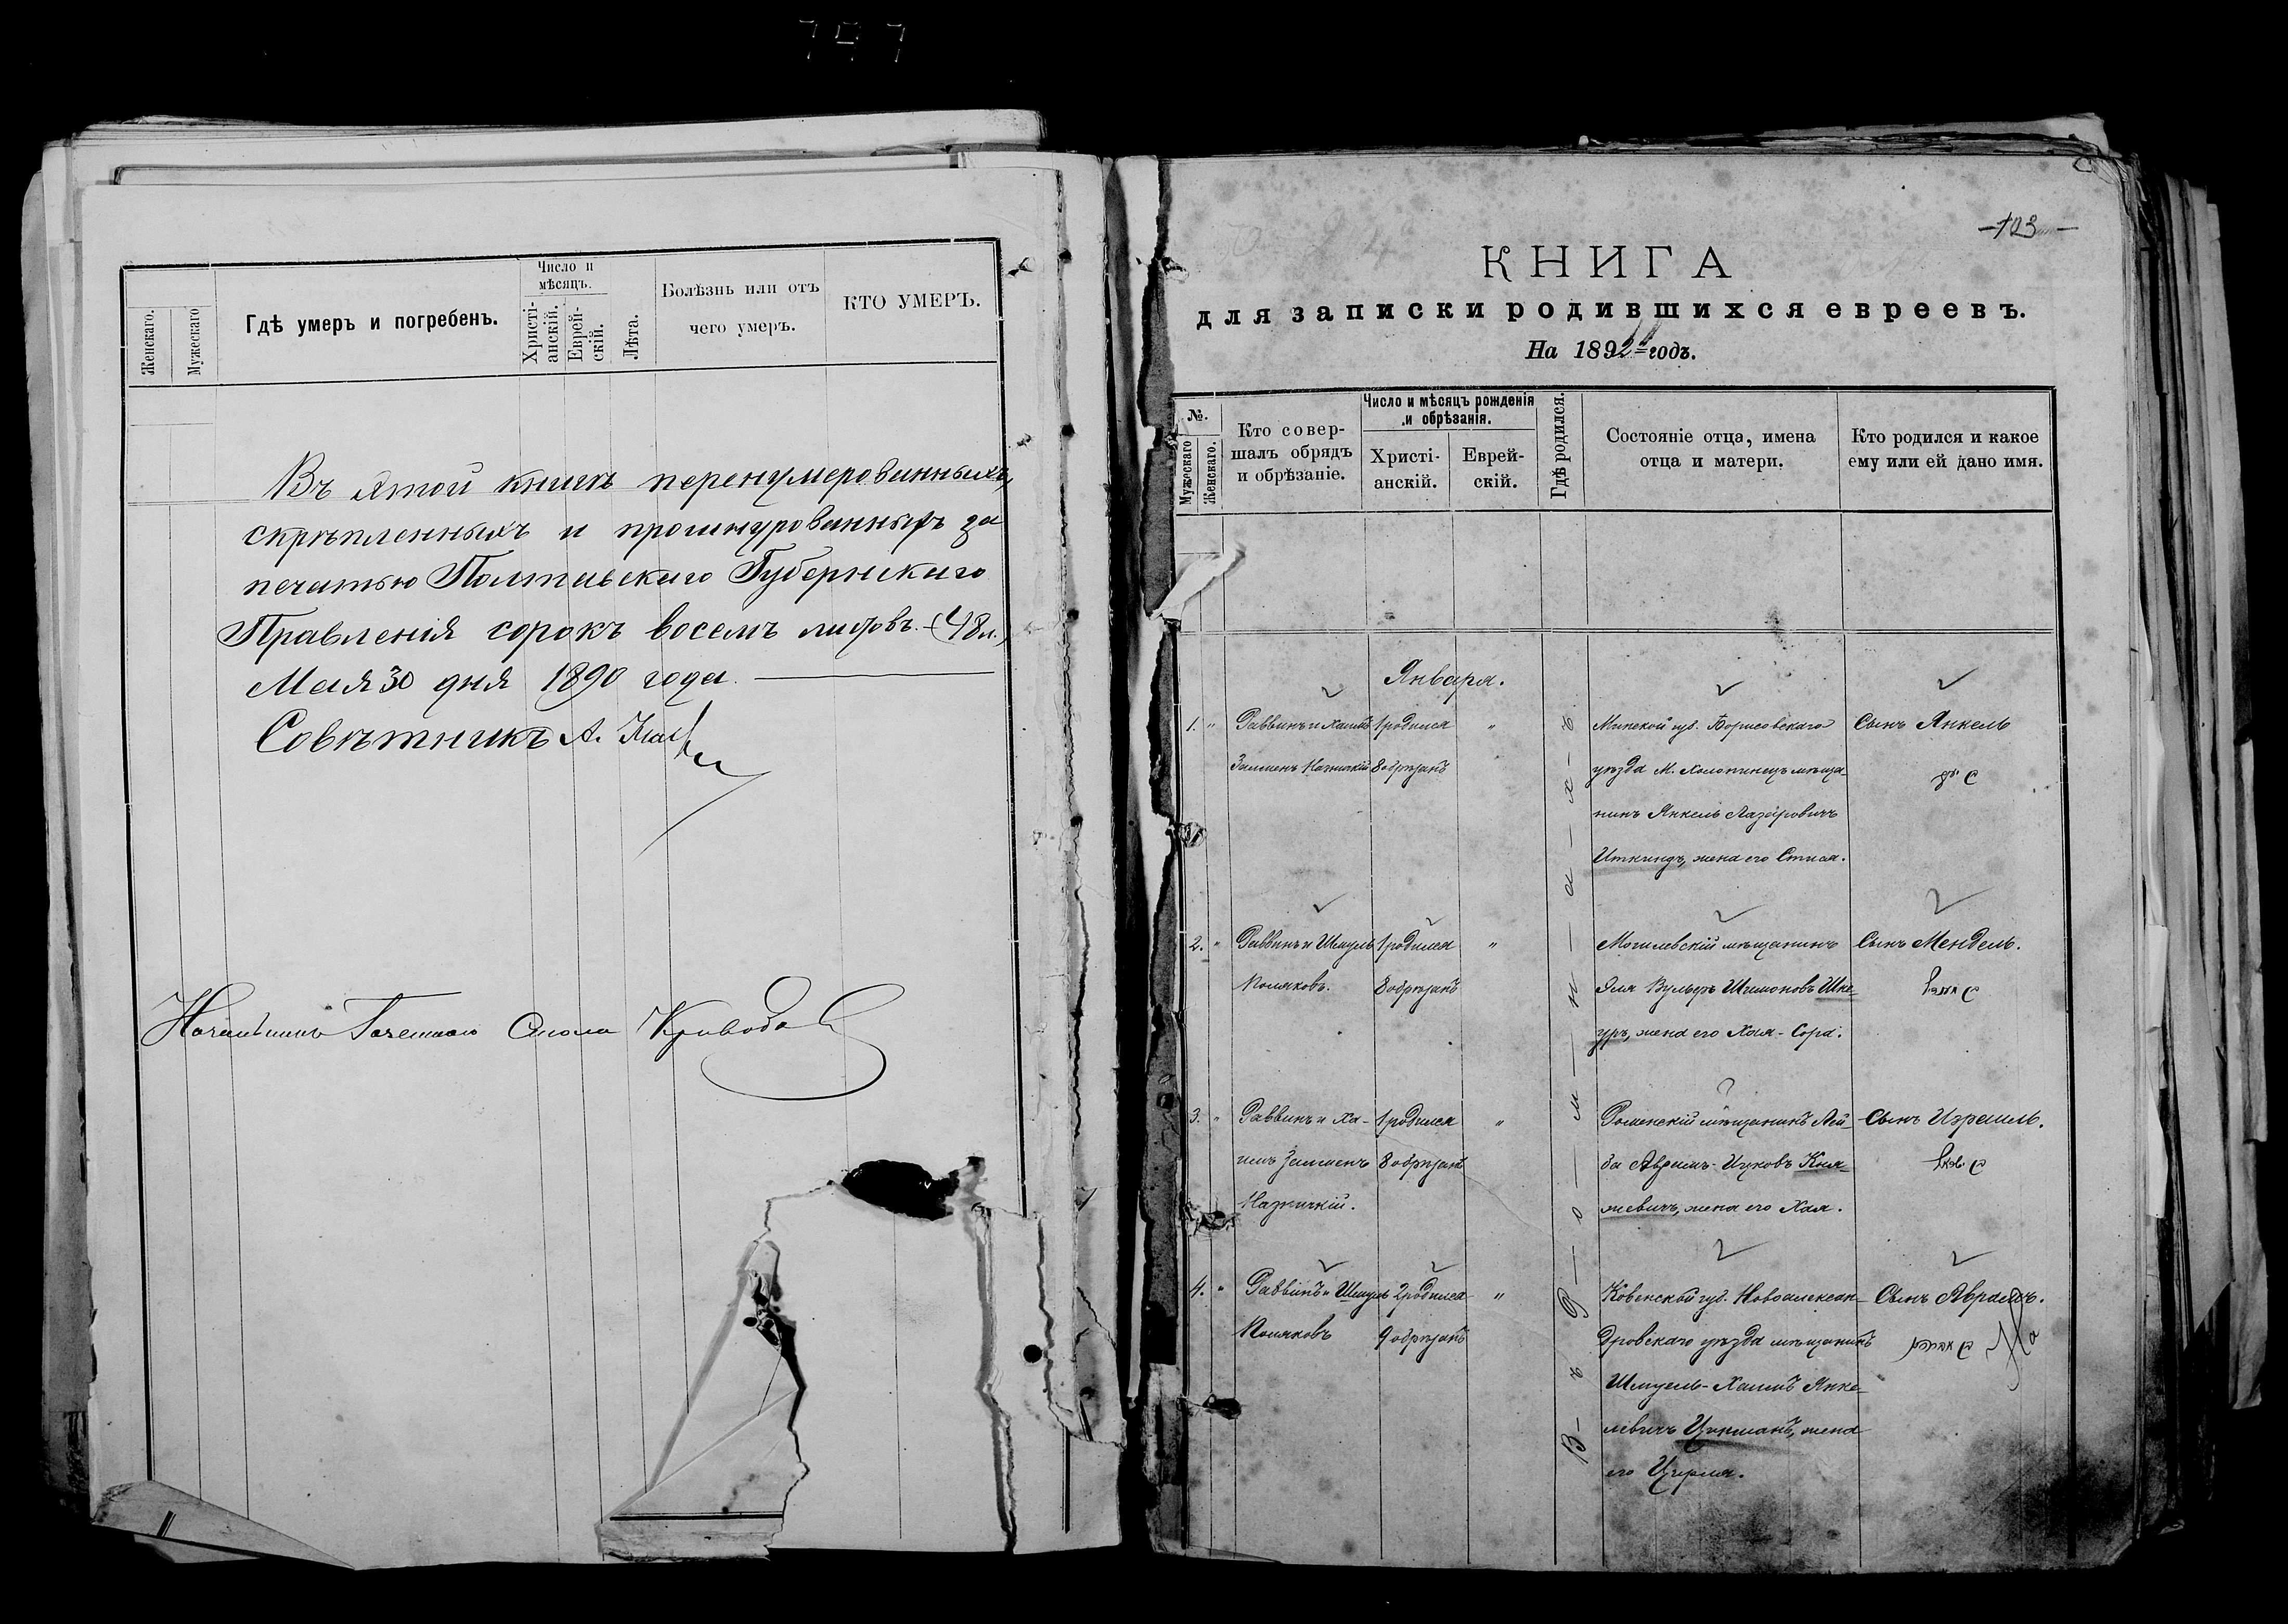 Женскаго.
Мужескаго
Гдѣ умеръ и погребенъ.
Число и
мѣсяцъ.
Христі-
анскій.
Еврей-
скій.
Лѣта.
Болѣзнь или отъ
чего умеръ.
КТО УМЕРЪ.
Въ этой книгѣ перенумерованныхъ,
скрѣпленныхъ и прошнурованныхъ за
печатью Полтавскаго Губернскаго
Правленія сорокъ восемь листовъ. (48 л.)
Мая 30 дня 1890 года.
Совѣтникъ А.
Начальникъ Стола
103
КНИГА
для записки родившихся евреевъ.
На 1892 годъ.
№.
Мужескаго
Женскаго.
Кто совер-
шалъ обрядъ
и обрѣзаніе.
Число и мѣсяцъ рожденія
и обрѣзанія.
Христі-
анскій.
Еврей-
скій.
Гдѣ родился.
Состояніе отца, имена
отца и матери.
Кто родился и какое
ему или ей дано имя.
Января.
Въ Ромнахъ
1. " Раввинъ и Хаимъ 1 родился " Минской губ. Борисовскаго Сынъ Янкель
Залменъ 8 обрѣзанъ уѣзда М. Холопиничъ мѣща-
нинъ Янкель Лазаровичъ
Иткиндъ, жена его
2. " Раввинъ и Шмуль 1 родился " Могилевскій мѣщанинъ Сынъ Мендель.
Поляковъ. 8 обрѣзанъ Эля Вульфъ Шимоновъ
жена его Хая-Сора.
3. " Раввинъ и Ха- 1 родился " Роменскій мѣщанинъ Лей- Сынъ Израиль.
имъ Залменъ 8 обрѣзанъ ба Аврамъ-Ицковъ
жена его Хая.
4. " Раввинъ и Шмуль 2 родился " Ковенской губ. Новоалексан- Сынъ Аврамъ.
Поляковъ 9 обрѣзанъ дровскаго уѣзда мѣщанинъ
Шмуель-Хаимъ Янке-
левичъ жена
его